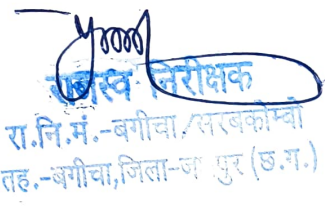 राजस्व निरीक्षक
रा.नि.मं.-बगीचा/सरबकोम्बो
तह.-बगीचा,जिला-ज पुर (छ.ग.)